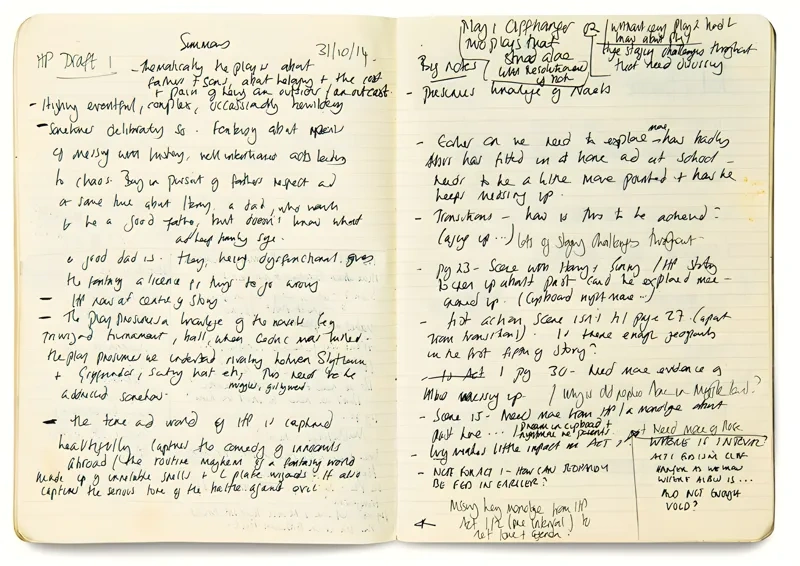 Summary
HP Draft 1
31/10/14
- Thematically the play is about
fathers + sons, about belonging + the cost
+ pain of being an outsider / an outcast.
- Highly eventful, complex, occasionally bewildering
- Sometimes deliberately so. Fantasy about
of messing with history, well intentioned acts leading
to chaos. Boy in pursuit of fathers respect and
at same time about Harry, a dad, who wants
to be a good father, but doesn't know what
and keep family safe.
a good dad is. They, being dysfunctional gives
the fantasy a licence for things to go wrong
- HP now at centre of story.
- The play presumes a knowledge of the novels (eg
Triwizard tournament, hall, when Cedric was killed.
The play presumes we understand rivalry between Slytherin
+ Gryffindor, sorting hat etc, This needs to be
muggles, gillyweed
addressed somehow.
- The tone and world of HP is captured
beautifully. Captures the comedy of innocents
abroad / the routine mayhem of a fantasy world
made up of unreliable spells + L plate wizards. It also
captures the serious tone of the battle against evil.
Play 1 Cliffhanger or
two plays that
stand alone
with resolution
is not
without seeing Play 2 need
huge staging challenges throughout
that need discussing
Big Notes
- Presumes knowledge of Novels
- Earlier on we need to explore more how badly
Albus has fitted in at home and at school -
Needs to be a little more pointed + how he
keeps messing up.
- Transitions - how is this to be achieved?
(ageing up...) Lots of staging challenges throughout -
- pg 23 - Scene with Harry + Ginny / HP starting
to open up about past could be explored more -
opened up. (Cupboard nightmare...)
- First action scene isn't til page 27 (apart
from transitions). Is there enough jeopardy
in the first fifty of story?
- Act 1 pg 30 - Need more evidence of
Albus messing up.
- Scene 15 - Need more from HP / a monologue about
past here ... Dream in cupboard +
nightmare re parents.
- Ivy makes little impact in Act 1
+ Need more of Rose
- NOTE FOR ACT 1 - HOW CAN
BE FED IN EARLIER?
WHERE IS INTERVAL?
ACT 1 END IS CLIFF
HANGER AS WE KNOW
WITHOUT ALBUS IS...
AND NOT ENOUGH
VOLD?
Missing key monologue from HP
Act 1 (pre interval) to